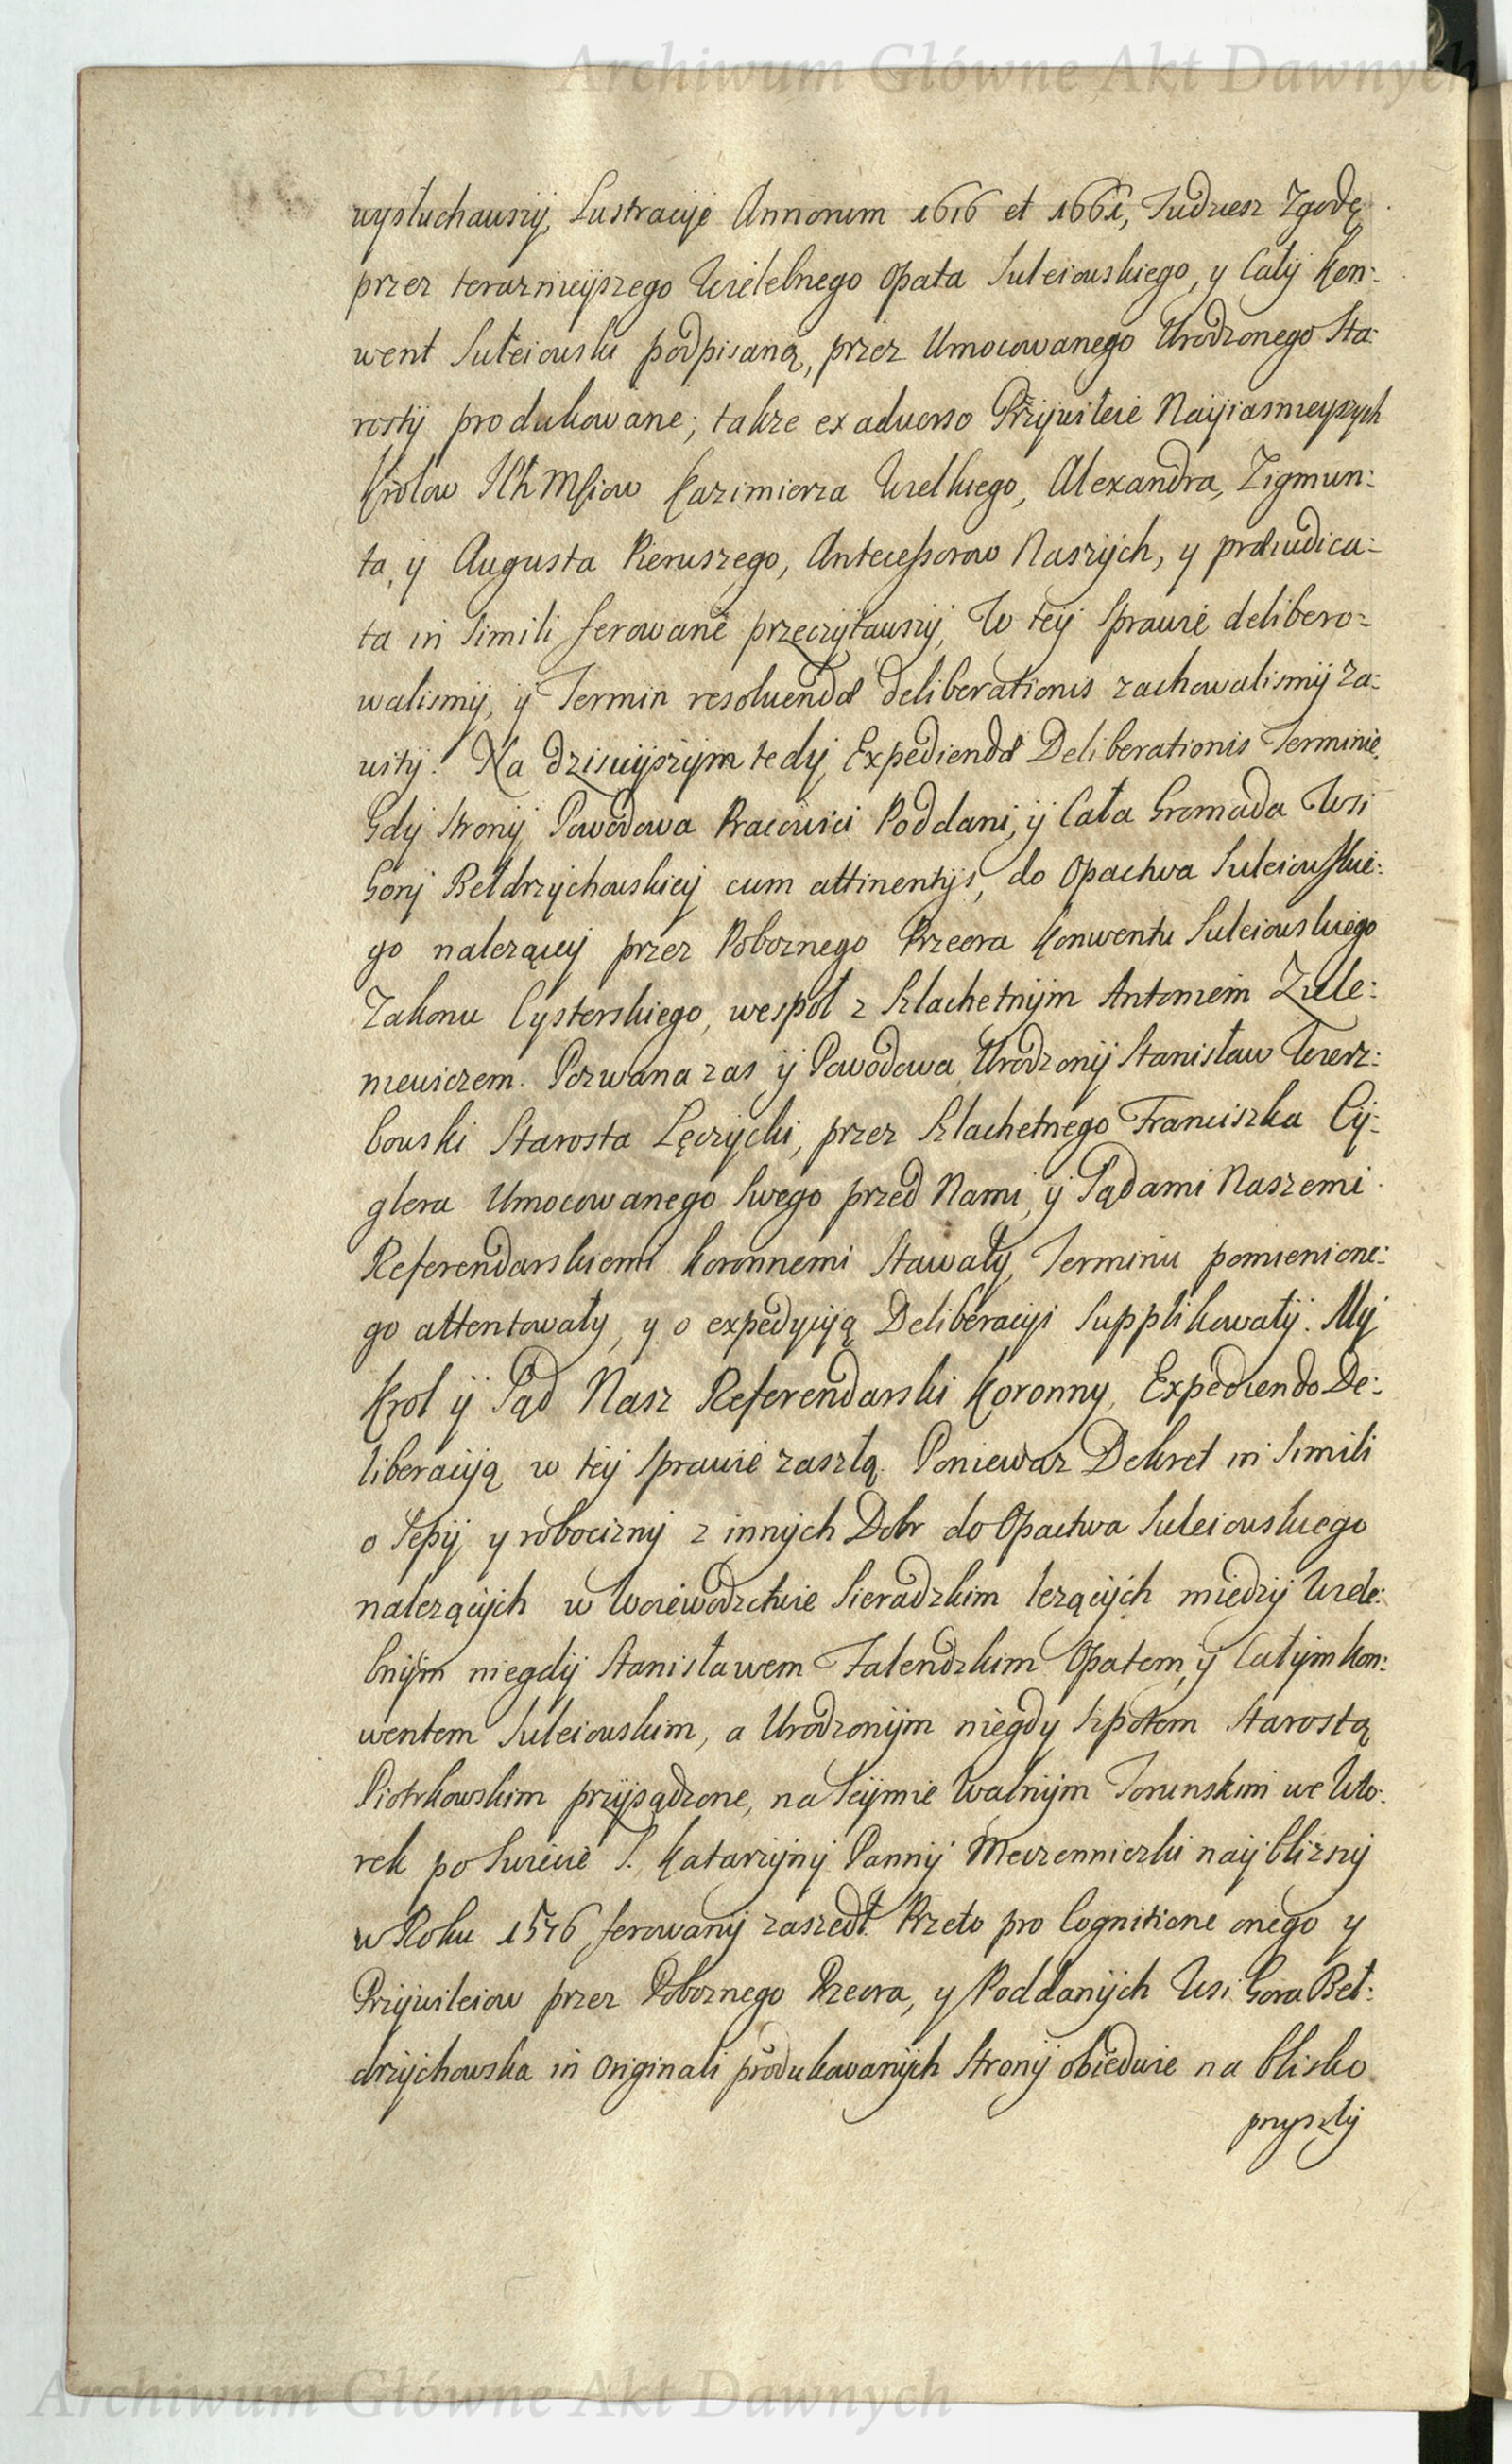 Archiwum Główne Akt Dawnych
wysłuchawszy, Lustracyje Annorum 1616 et 1661, Tudziesz Zgodę
przez teraznieyszego Wielebnego Opata Suleiowskiego, y Cały Kon:
went Suleiowski podpisaną, przez Umocowanego Urodzonego Sta:
rosty produkowane; takze ex adverso Przywileie Nayiasnieyszych
Krolow Ich Msciow Kazimierza Wielkiego, Alexandra, Zigmun:
ta, y Augusta Pierwszego, Antecessorow Naszych, y præiudica:
ta in Simili ferowane przeczytawszy, W tey Sprawie delibero=
walismy, y Termin resoluendæ deliberationis zachowalismy za:
wity. Na dzisieyszym tedy Expediendæ Deliberationis Terminie,
Gdy Strony Powodowa Pracowici Poddani, y Cała Gromada Wsi
Gory Bełdrzychowskiey cum attinentijs, do Opactwa Suleiowskie:
go nalezącey przez Poboznego Przeora Konwentu Suleiowskiego
Zakonu Cysterskiego, wespoł z Szlachetnym Antoniem Zule:
niewiczem. Pozwana zas y Powodowa Urodzony Stanisław Wierz:
bowski Starosta Łęczycki, przez Szlachetnego Franciszka Cy:
glera Umocowanego Swego przed Nami, y Sądami Naszemi
Referendarskiemi Koronnemi Stawały, Terminu pomienione:
go attentowały, y o expedycyią Deliberacyi Supplikowały. My
Krol y Sąd Nasz Referendarski Koronny, Expediendo De:
liberacyią w tey Sprawie zaszłą. Poniewaz Dekret in Simili
o Sepy y robocizny z innych Dobr do Opactwa Suleiowskiego
nalezących w Woiewodztwie Sieradzkim lezących miedzy Wiele:
bnym niegdy Stanisławem Falendzkim Opatem, y Całym Kon:
wentem Suleiowskim, a Urodzonym niegdy Szpotem Starostą
Piotrkowskim przysądzone, na Seymie Walnym Torunskim we Wto:
rek po Swiecie S. Katarzyny Panny Meczenniczki nayblizszy
w Roku 1576 ferowany zaszedł. Przeto pro Cognitione onego y
Przywileiow przez Poboznego Przeora, y Poddanych Wsi Gora Beł:
drzychowska in Originali produkowanych Strony obiedwie na blisko
przyszły
Archiwum Główne Akt Dawnych